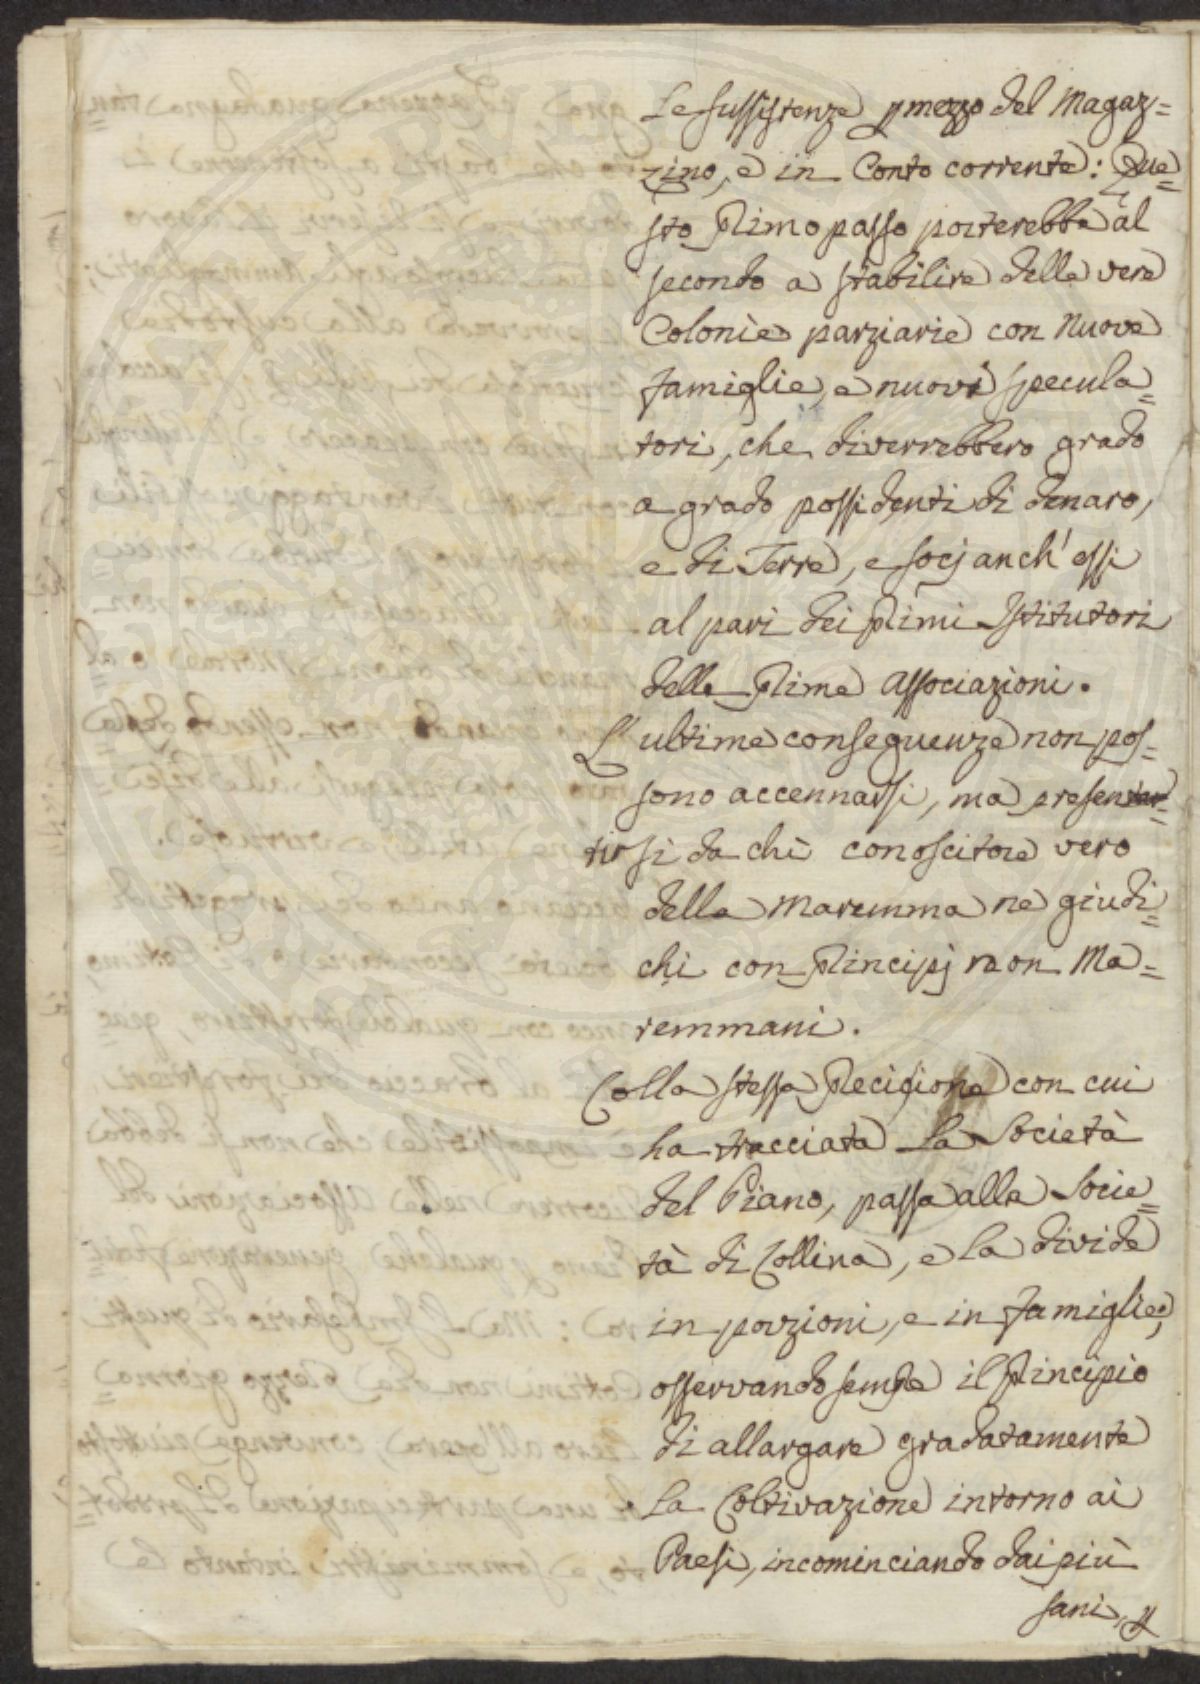 Le sussistenze p mezzo del Magaz=
zino, e in Conto corrente: Que=
sto Primo passo porterebbe al
secondo a stabilire delle vere
Colonie parziarie con Nuove
famiglie, e nuovi specula=
tori, che diverrebbero grado
a grado possidenti di denaro,
e di Terre, e socj anch' essi
al pari dei Primi Istitutori
delle Prime Associazioni.
L' ultime conseguenze non pos=
sono accennarsi, ma presen=
tirsi da chi conoscitore vero
della Maremma ne giudi=
chi con Principj non Ma=
remmani.
Colla stessa Precisione con cui
ha tracciata La Società
del Piano, passa alla Socie=
tà di Collina, e La divide
in porzioni, e in famiglie,
osservando sempre il Principio
di allargare gradatamente
La Coltivazione intorno ai
Paesi, incominciando dai più
sani, p